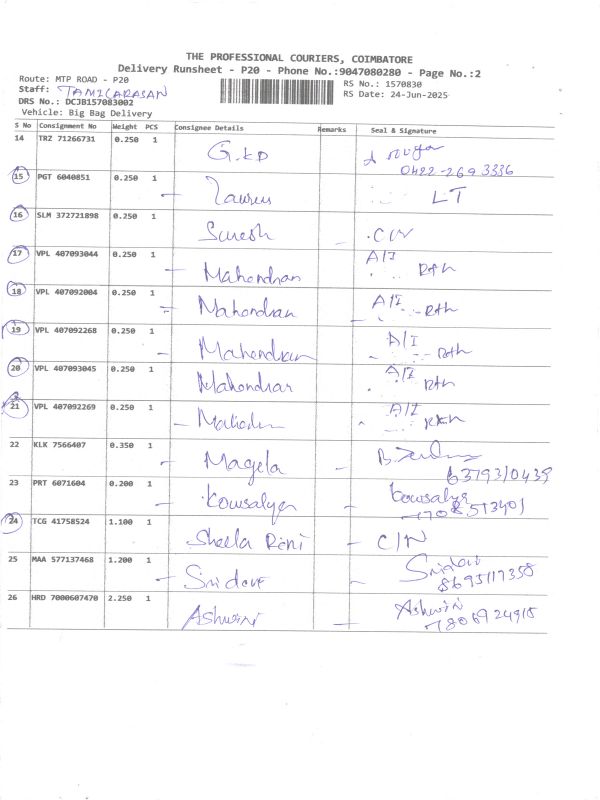 THE PROFESSIONAL COURIERS, COIMBATORE
Delivery Runsheet - P20 - Phone No.:9047080280 - Page No.:2
Route: MTP ROAD - P20
RS No.: 1570830
Staff: TAMILARASAN
RS Date: 24-Jun-2025
DRS No.: DCJB157083002
Vehicle: Big Bag Delivery
S No Consignment No Weight PCS Consignee Details Remarks Seal & Signature
14 TRZ 71266731 0.250 1 G.KD
0422-2693336
15 PGT 6040851 0.250 1 LT
16 SLM 372721898 0.250 1 Suresh C/N
17 VPL 407093044 0.250 1 Mahendran A/I
18 VPL 407092004 0.250 1 Mahendran A/I
19 VPL 407092268 0.250 1 Mahendran A/I
20 VPL 407093045 0.250 1 Mahendran A/I
21 VPL 407092269 0.250 1 A/I
22 KLK 7566407 0.350 1 Magela
6379310439
23 PRT 6071604 0.200 1 Kowsalya Kowsalya
24 TCG 41758524 1.100 1 Sheela Rani C/N
25 MAA 577137468 1.200 1 Sridevi Sridevi
8695117358
26 HRD 7000607470 2.250 1 Ashwini Ashwini
7806924918